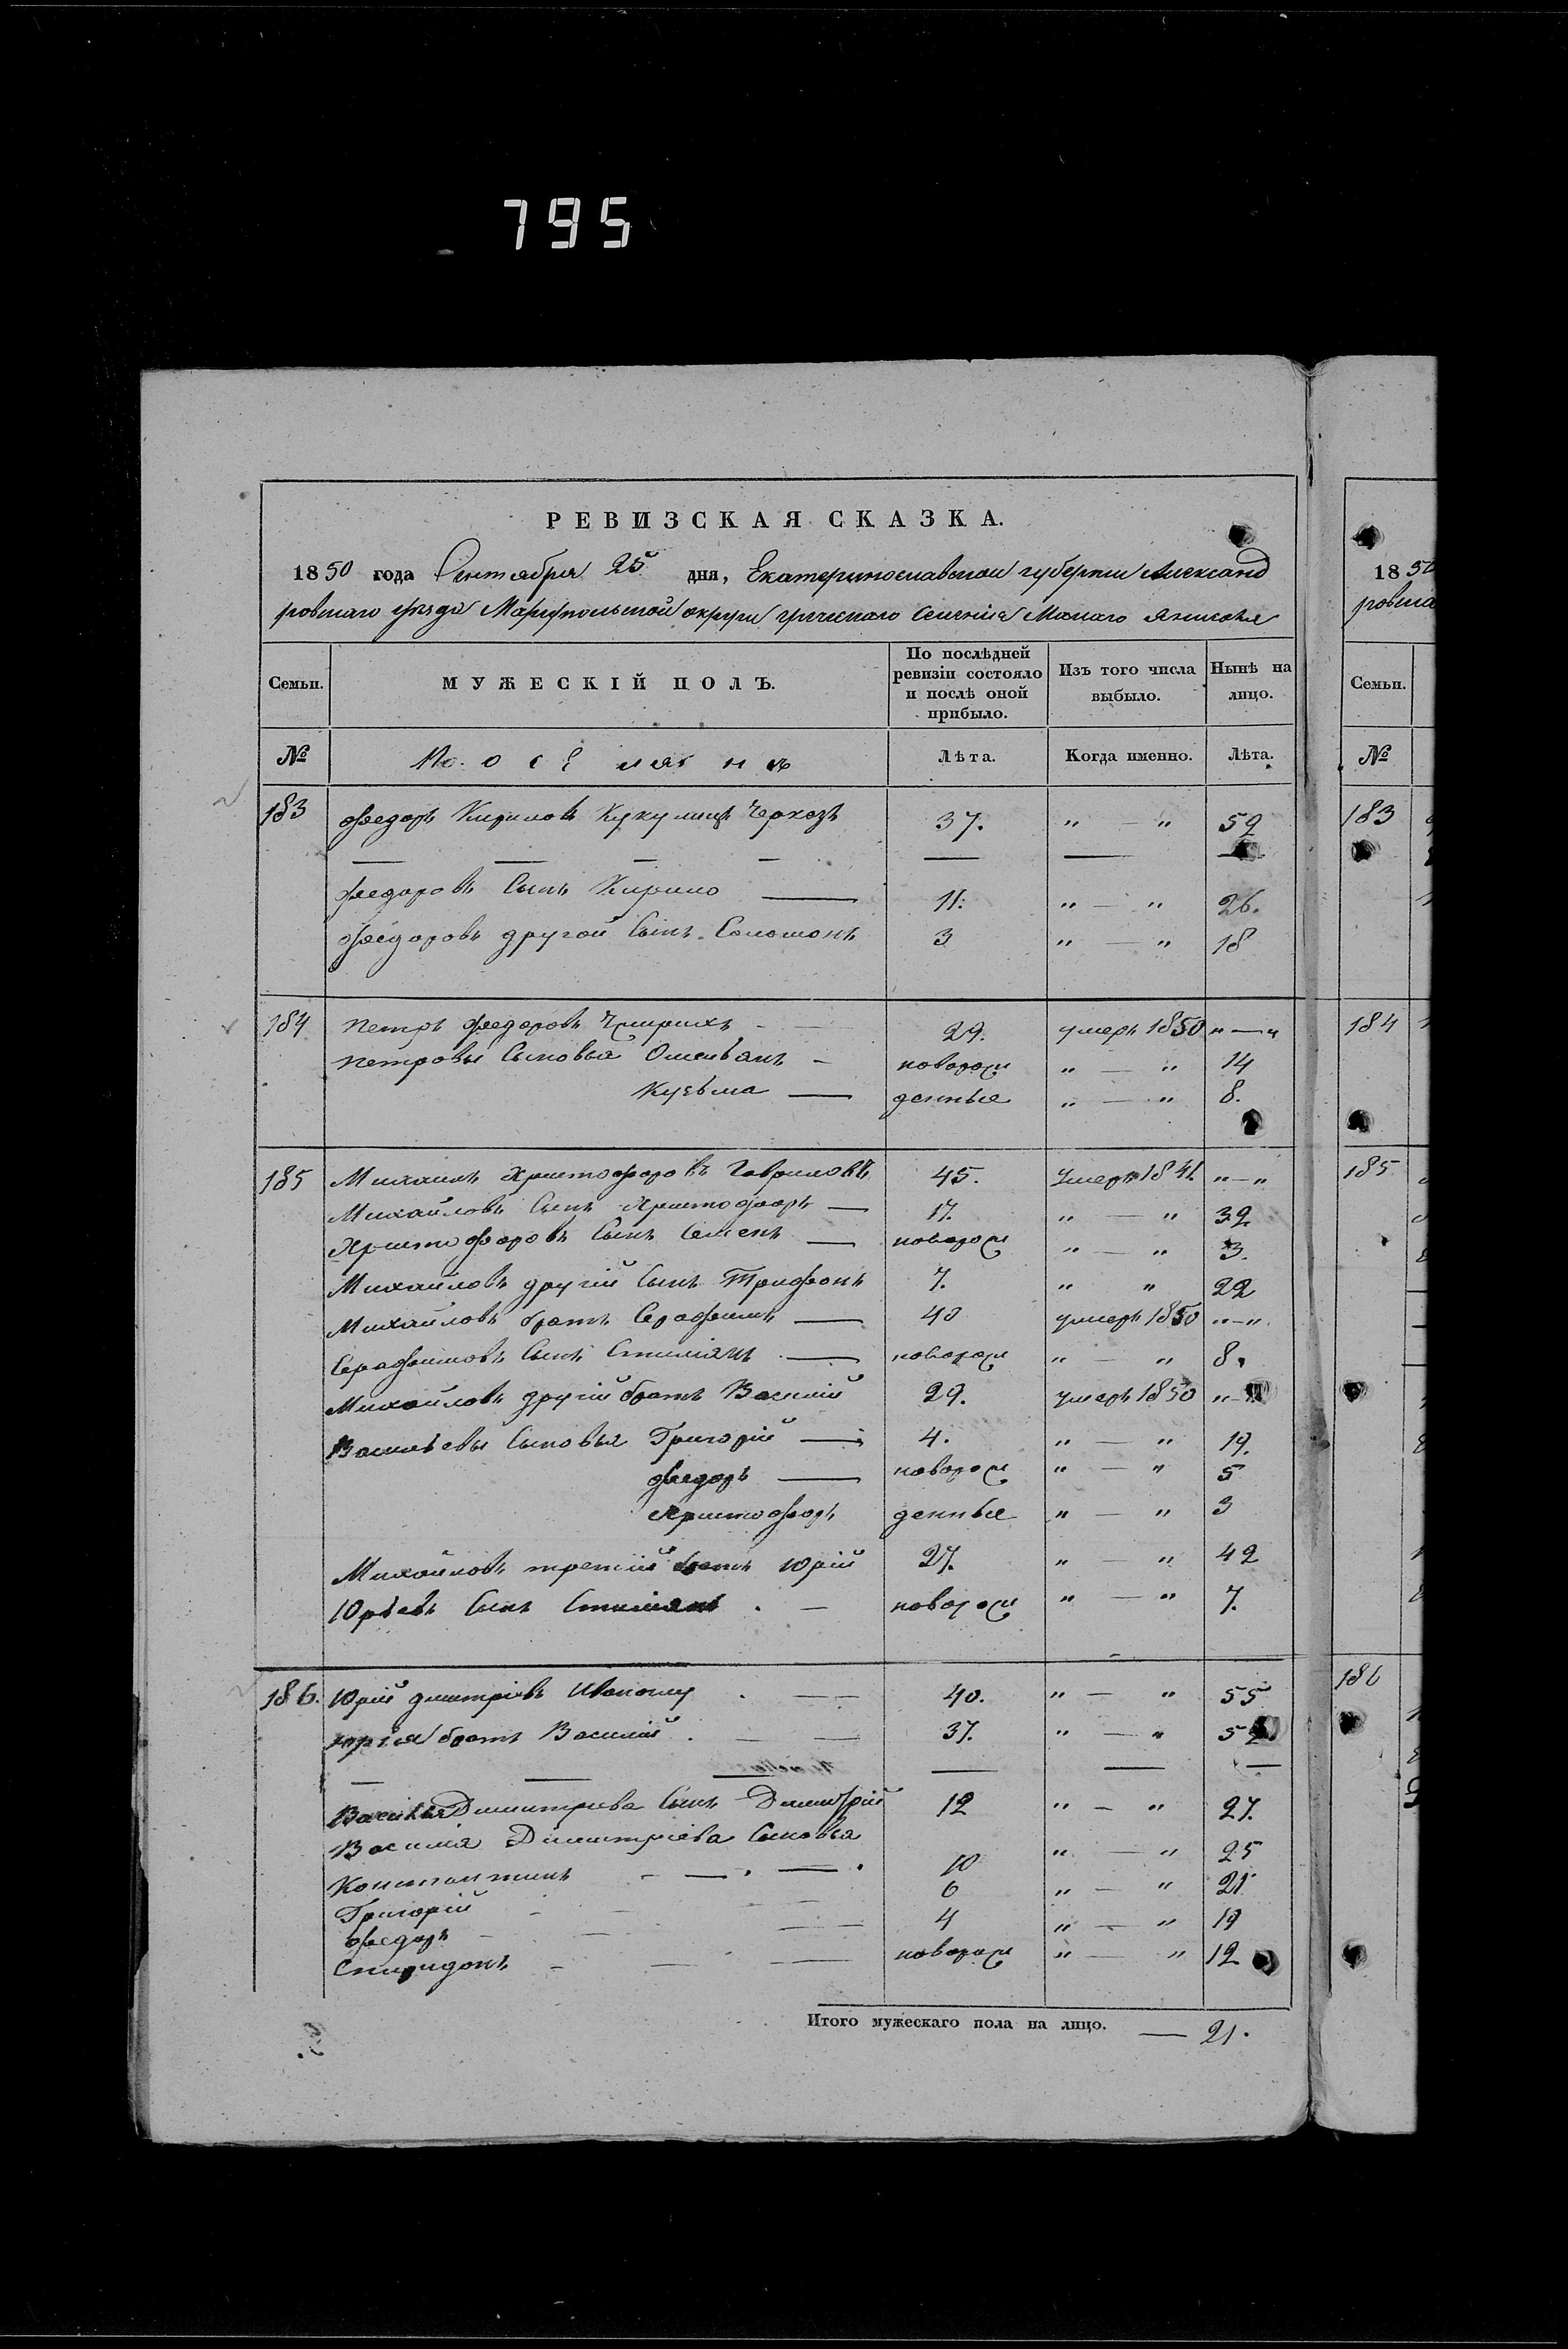 795
РЕВИЗСКАЯ СКАЗКА.
1850 года Сентября 25 дня, Екатеринославской губернии Александ
ровскаго уезда Мариупольской округи греческаго селенія Малаго Янисоля
Семьи. МУЖЕСКІЙ ПОЛЪ. По послѣдней ревизіи состояло и послѣ оной прибыло. Изъ того числа выбыло. Нынѣ на лицо.
№ Лѣта. Когда именно. Лѣта.
183 Федоръ Кириловъ Черкезъ 37. " — " 59
Федоровъ Сынъ Кирило — 11. " — " 26.
Федоровъ другой Сынъ Соломонъ 3 " — " 18
184 Петръ Федоровъ 29. умеръ 1850 " — "
Петровы Сыновья — новорож " — " 14
Кузьма — денные " — " 8.
185 Михаилъ Христофоровъ Гавриловъ 45. Умеръ 1841 " — "
Михайловъ Сынъ Христофоръ — 17. " — " 32
Христофоровъ Сынъ Семенъ — новорож " — " 3.
Михайловъ другій Сынъ Трифонъ 7. " " 22
Михайловъ братъ Серафимъ — 40 умеръ 1850 " — "
Серафимовъ Сынъ Стиліянъ — новорож " — " 8.
Михайловъ другій братъ Василій 29. умеръ 1850 " —
Васильевы Сыновья Григорій — 4. " — " 19.
Федоръ — новорож " — " 5
Христофоръ денные " — " 3
Михайловъ третій братъ Юрій 27. " — " 42
Юрьевъ Сынъ Стиліянъ . — новорож " — " 7.
186. Юрій Дмитріевъ . — 40. " — " 55
Юрія братъ Василій . — 37. " — "
Василья Димитріева Сынъ Димитрій 12 " — " 27.
Василія Димитріева Сыновья
Константинъ — 10 " — " 25
Григорій — 6 " — " 21
Федоръ — 4 " — " 19
Спиридонъ — новорож " — " 12
Итого мужескаго пола на лицо. — 21.
1850
Семьи.
№
183
184
185
186